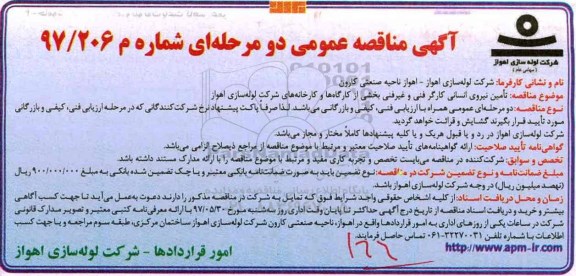 آگهی مناقصه عمومی دو مرحله‌ای شماره م ۹۷/۲۰۶
شرکت لوله سازی اهواز
(سهامی عام)
نام و نشانی کارفرما: شرکت لوله‌سازی اهواز - اهواز ناحیه صنعتی کارون
موضوع مناقصه: تأمین نیروی انسانی کارگر فنی و غیرفنی بخشی از کارگاه‌ها و کارخانه‌های شرکت لوله‌سازی اهواز
نوع مناقصه: دو مرحله‌ای عمومی همراه با ارزیابی فنی، کیفی و بازرگانی می‌باشد. لذا صرفاً پاکت پیشنهاد نرخ شرکت‌کنندگانی که در مرحله ارزیابی فنی، کیفی و بازرگانی
مورد تأیید قرار بگیرند گشایش و قرائت خواهد گردید.
شرکت لوله‌سازی اهواز در رد و یا قبول هریک و یا کلیه پیشنهادها کاملاً مختار و مجاز می‌باشد.
گواهی‌نامه تأیید صلاحیت: ارائه گواهینامه‌های تأیید صلاحیت معتبر و مرتبط با موضوع مناقصه از مراجع ذیصلاح الزامی می‌باشد.
تخصص و سوابق: شرکت‌کننده در مناقصه می‌بایست تخصص و تجربه کاری مفید و مرتبط با موضوع مناقصه را با ارائه مدارک مستند داشته باشد.
مبلغ ضمانت‌نامه و نوع تضمین شرکت در مناقصه: نوع تضمین باید به صورت ضمانت‌نامه بانکی معتبر و یا چک تضمین شده بانکی به مبلغ ۹۰۰/۰۰۰/۰۰۰ ریال
(نهصد میلیون ریال) در وجه شرکت لوله‌سازی اهواز باشد.
زمان و محل دریافت اسناد: از کلیه اشخاص حقوقی واجد شرایط فوق که تمایل به شرکت در مناقصه مذکور را دارند دعوت به‌عمل می‌آید تا جهت کسب آگاهی
بیشتر و خرید و دریافت اسناد مناقصه از تاریخ درج آگهی حداکثر تا پایان وقت اداری روز سه‌شنبه مورخ ۹۷/۰۵/۳۰ با ارائه معرفی‌نامه کتبی معتبر و تصویر مدارک قانونی
شرکت در ساعات یکی از روزهای اداری به امور قراردادها واقع در اهواز، ناحیه صنعتی کارون شرکت لوله‌سازی اهواز ساختمان مرکزی، طبقه سوم مراجعه و یا جهت کسب
اطلاعات با شماره تلفن ۳۲۲۷۰۰۳۱-۰۶۱ تماس حاصل فرمایند.
http://www.apm-ir.com
امور قراردادها - شرکت لوله‌سازی اهواز